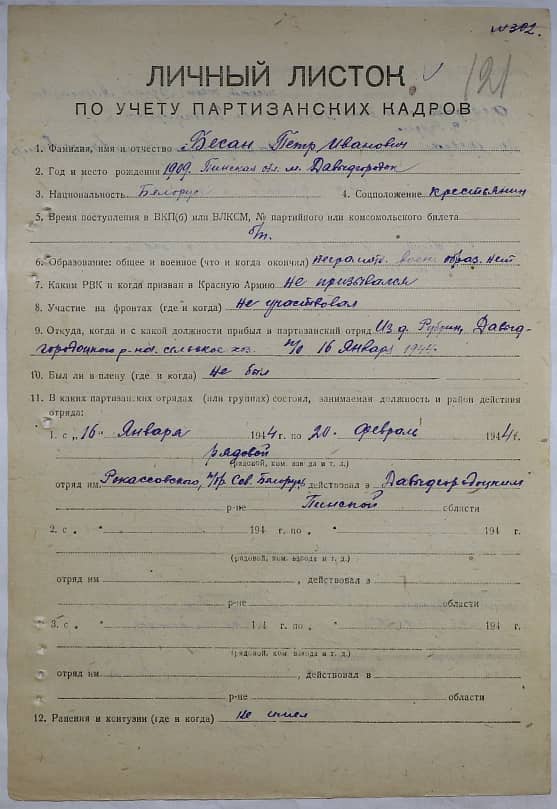 №302.
121
ЛИЧНЫЙ ЛИСТОК
ПО УЧЕТУ ПАРТИЗАНСКИХ КАДРОВ
1. Фамилия, имя и отчество Бесан Петр Иванович
2. Год и место рождения 1909. Пинская обл. м. Давыдгородок
3. Национальность Белорус 4. Соцположение крестьянин
5. Время поступления в ВКП(б) или ВЛКСМ, № партийного или комсомольского билета
б/п.
6. Образование: общее и военное (что и когда окончил) неграмотн. воен. образ. нет
7. Каким РВК и когда призван в Красную Армию не призывался
8. Участие на фронтах (где и когда) не участвовал
9. Откуда, когда и с какой должности прибыл в партизанский отряд Из д. Рубрин, Давыд-
городоцкого р-на. сельское хоз. п/о 16 января 1944.
10. Был ли в плену (где и когда) не был
11. В каких партизанских отрядах (или группах) состоял, занимаемая должность и район действия
отряда:
1. с „16" января 1944 г. по 20 " февраль 1944 г.
рядовой
(рядовой, ком. взвода и т. д.)
отряд им Рокассовского, п/бр Сов. Белорусь действовал в Давыдгородоцким
р-не Пинской области
2. с „ " 194 г. по „ " 194 г.
(рядовой, ком. взвода и т. д.)
отряд им , действовал в
р-не области
3. с „ " 194 г. по „ " 194 г.
(рядовой, ком. взвода и т. д.)
отряд им , действовал в
р-не области
12. Ранения и контузии (где и когда) не имел